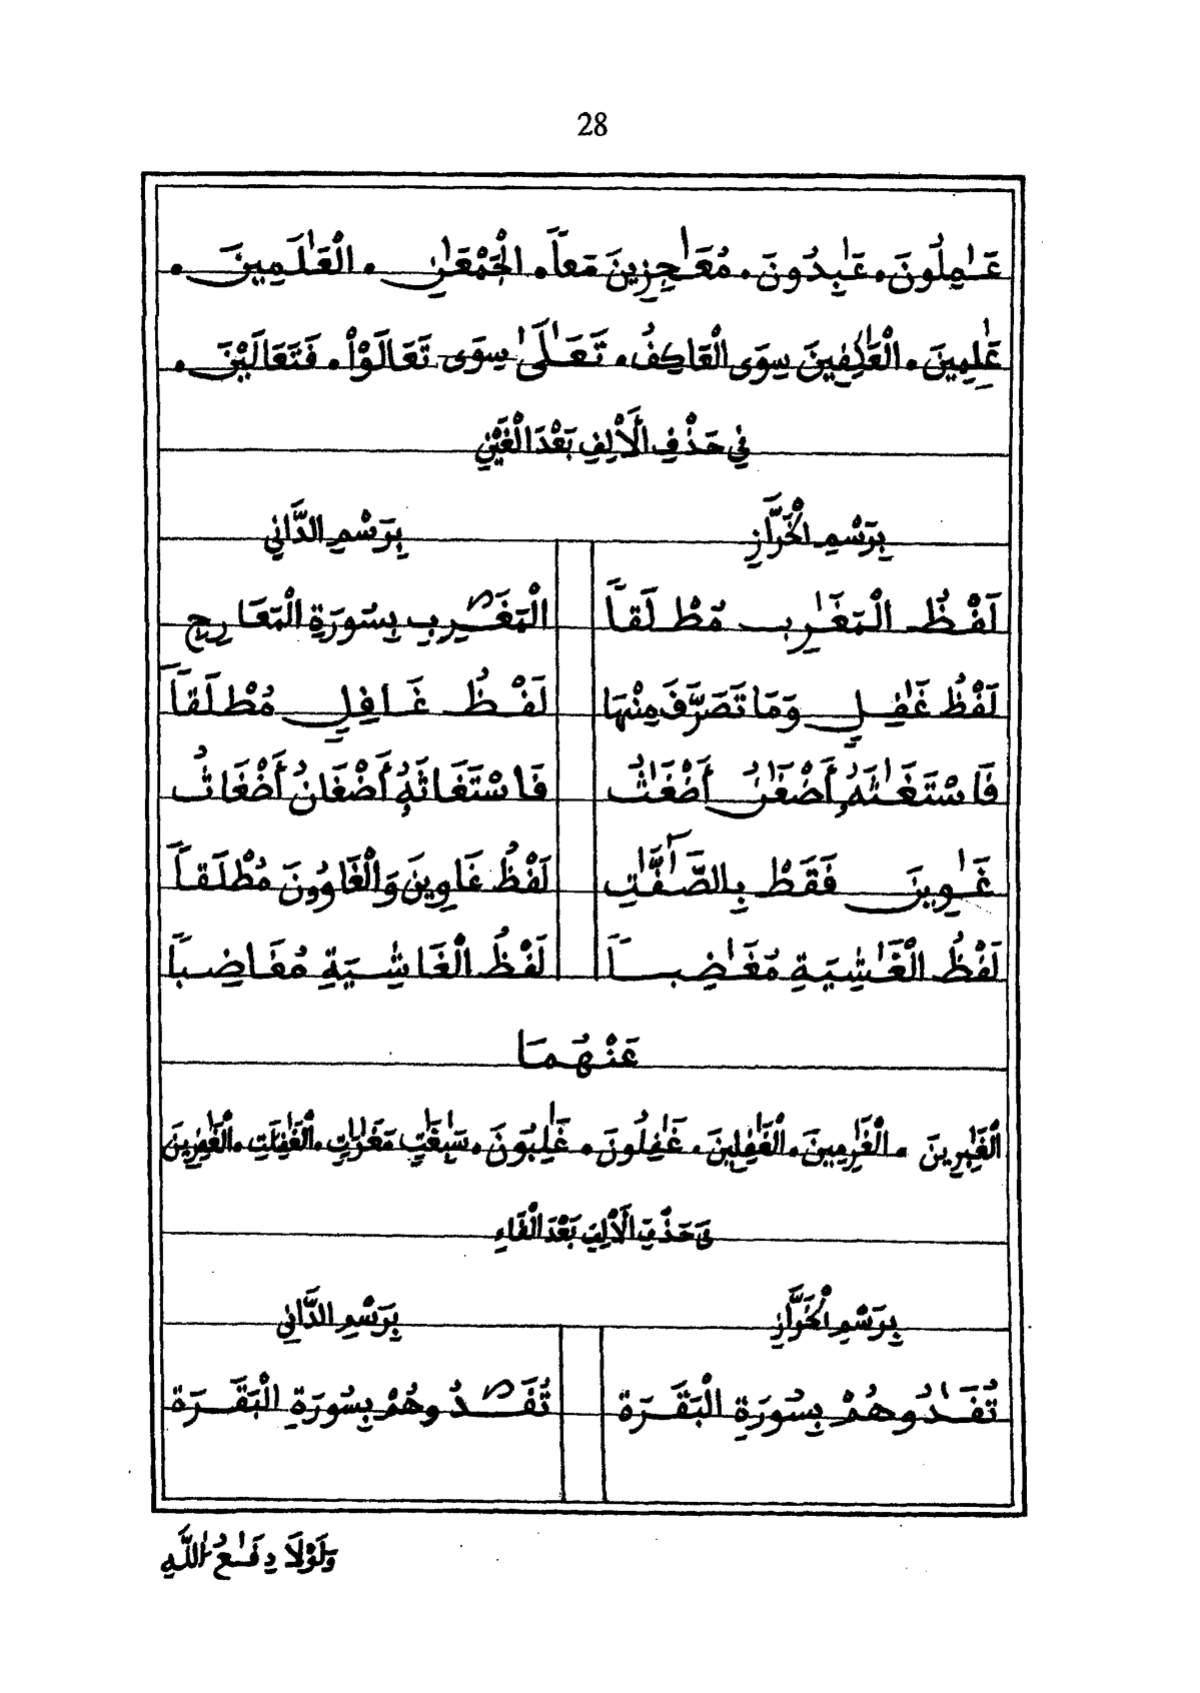 28
عَٰمِلُونَ . عَٰبِدُونَ . مُعَٰجِزِينَ مَعاً . الْجَمْعَٰنِ . الْعَٰلَمِينَ .
عَٰلِمِينَ . الْعَٰكِفِينَ سِوَى الْعَاكِفُ . تَعَٰلَىٰ سِوَى تَعَالَوْاْ . فَتَعَالَيْنَ .
فِي حَذْفِ الْأَلِفِ بَعْدَ الْغَيْنِ
بِرَسْمِ الْخَرَّازِ بِرَسْمِ الدَّانِي
لَفْظُ الْمَغَٰرِبِ مُطْلَقاً الْمَغَٰرِبِ بِسُورَةِ الْمَعَارِجِ
لَفْظُ غَٰفِلٍ وَمَا تَصَرَّفَ مِنْهَا لَفْظُ غَافِلٍ مُطْلَقاً
فَاسْتَغَٰثَهُ أَضْغَٰنَ أَضْغَٰثُ فَاسْتَغَاثَهُ أَضْغَانُ أَضْغَاثُ
غَٰوِينَ فَقَطْ بِالصَّٰٓفَّٰتِ لَفْظُ غَاوِينَ وَالْغَاوُونَ مُطْلَقاً
لَفْظُ الْغَٰشِيَةِ مُغَٰضِباً لَفْظُ الْغَاشِيَةِ مُغَاضِباً
عَنْهُمَا
الْغَٰبِرِينَ . الْغَٰرِمِينَ . الْغَٰفِلِينَ . غَٰفِلُونَ . غَٰلِبُونَ . سَٰبِغَٰتٍ مَغَٰرَٰتٍ . الْغَٰفِلَٰتِ . الْغَٰفِرِينَ
فِى حَذْفِ الْأَلِفِ بَعْدَ الْفَاءِ
بِرَسْمِ الْخَرَّازِ بِرَسْمِ الدَّانِي
تُفَٰدُوهُمْ بِسُورَةِ الْبَقَرَة تُفَٰدُوهُمْ بِسُورَةِ الْبَقَرَة
وَلَوْلَا دِفَٰعُ اللَّهِ